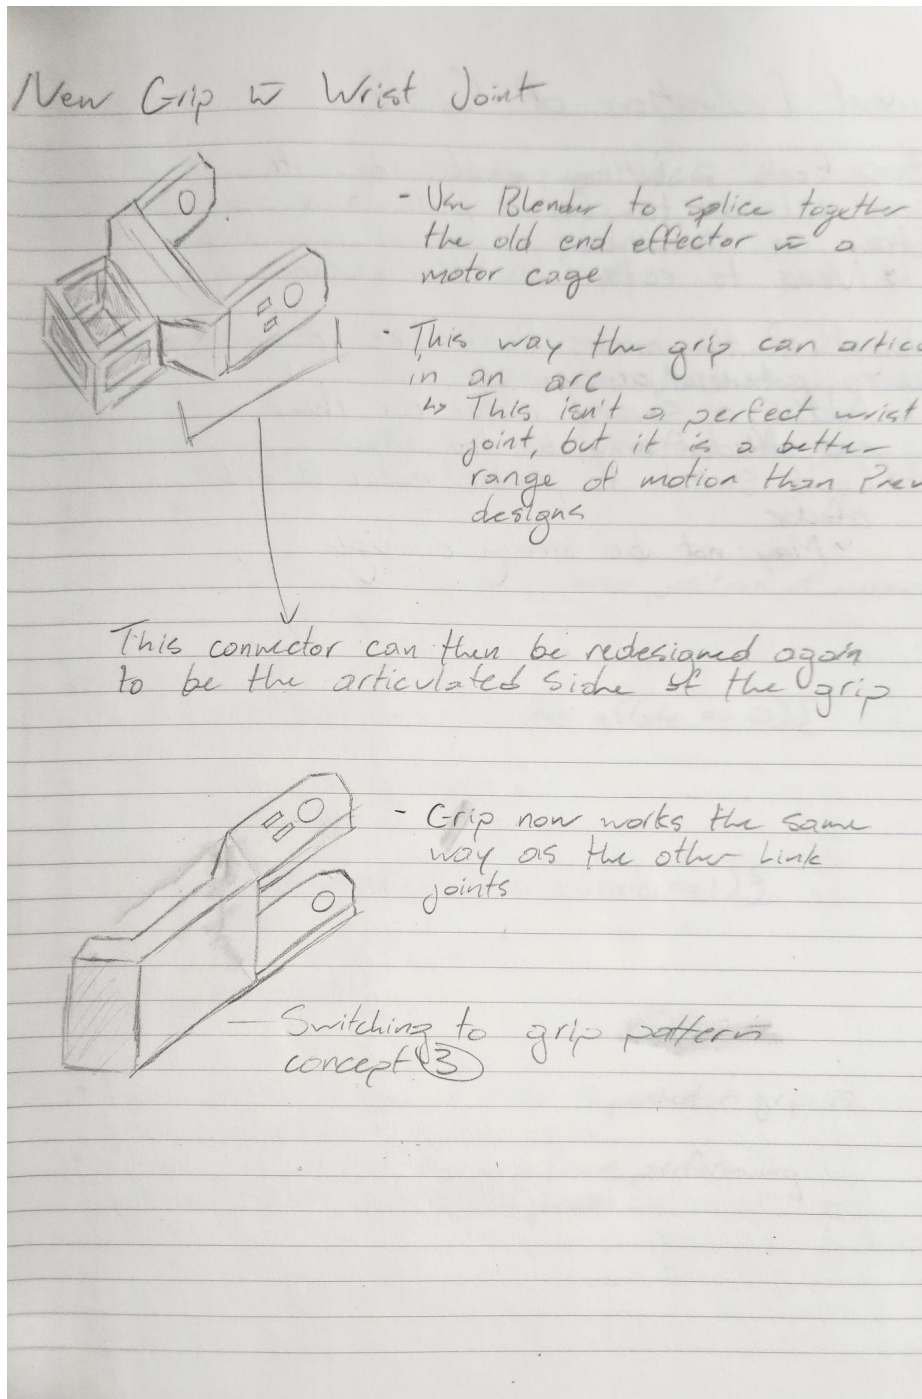 New Grip w̄ Wrist Joint
- Use Blender to splice together
the old end effector w̄ a
motor cage
- This way the grip can artic
in an arc
↳ This isn't a perfect wrist
joint, but it is a better
range of motion than Prev
designs
This connector can then be redesigned again
to be the articulated side of the grip
- Grip now works the same
way as the other Link
joints
- Switching to grip pattern
concept 3